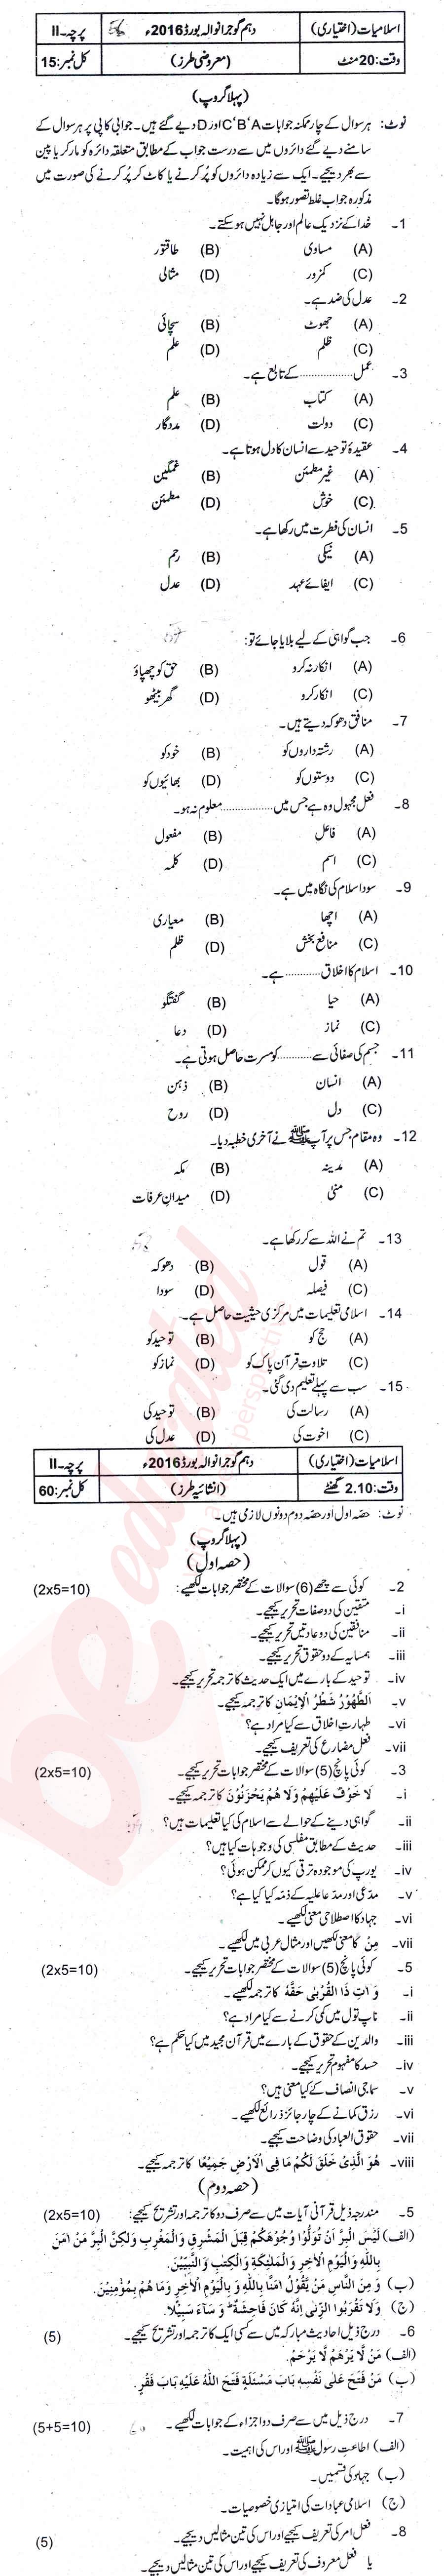 اسلامیات (اختیاری) دہم گوجرانوالہ بورڈ 2016ء پرچہ۔II
وقت: 20 منٹ (معروضی طرز) کل نمبر: 15
(پہلا گروپ)
نوٹ: ہر سوال کے چار ممکنہ جوابات C ‘B ‘A اور D دیے گئے ہیں۔ جوابی کاپی پر ہر سوال کے
سامنے دیے گئے دائروں میں سے درست جواب کے مطابق متعلقہ دائرہ کو مارکر یا پین
سے بھر دیجیے۔ ایک سے زیادہ دائروں کو پُر کرنے یا کاٹ کر پُر کرنے کی صورت میں
مذکورہ جواب غلط تصور ہوگا۔
1۔ خدا کے نزدیک عالم اور جاہل نہیں ہو سکتے۔
(A) مساوی (B) طاقتور
(C) کمزور (D) مثالی
2۔ عدل کی ضد ہے۔
(A) جھوٹ (B) سچائی
(C) ظلم (D) علم
3۔ عمل ............ کے تابع ہے۔
(A) کتاب (B) علم
(C) دولت (D) مددگار
4۔ عقیدۂ توحید سے انسان کا دل ہوتا ہے۔
(A) غیر مطمئن (B) غمگین
(C) خوش (D) مطمئن
5۔ انسان کی فطرت میں رکھا ہے۔
(A) نیکی (B) رحم
(C) ایفائے عہد (D) عدل
6۔ جب گواہی کے لیے بلایا جائے تو:
(A) انکار نہ کرو (B) حق کو چھپاؤ
(C) انکار کرو (D) گھر بیٹھو
7۔ منافق دھوکہ دیتے ہیں۔
(A) رشتہ داروں کو (B) خود کو
(C) دوستوں کو (D) بھائیوں کو
8۔ فعل مجہول وہ ہے جس میں ............ معلوم نہ ہو۔
(A) فاعل (B) مفعول
(C) اسم (D) کلمہ
9۔ سود اسلام کی نگاہ میں ہے۔
(A) اچھا (B) معیاری
(C) منافع بخش (D) ظلم
10۔ اسلام کا اخلاق ......... ہے۔
(A) حیا (B) گفتگو
(C) نماز (D) دعا
11۔ جسم کی صفائی سے ......... کو مسرت حاصل ہوتی ہے۔
(A) انسان (B) ذہن
(C) دل (D) روح
12۔ وہ مقام جس پر آپ ﷺ نے آخری خطبہ دیا۔
(A) مدینہ (B) مکہ
(C) منیٰ (D) میدانِ عرفات
13۔ تم نے اللہ سے کر رکھا ہے۔
(A) قول (B) دھوکہ
(C) فیصلہ (D) سودا
14۔ اسلامی تعلیمات میں مرکزی حیثیت حاصل ہے۔
(A) حج کو (B) توحید کو
(C) تلاوتِ قرآن پاک کو (D) نماز کو
15۔ سب سے پہلے تعلیم دی گئی۔
(A) رسالت کی (B) توحید کی
(C) اخوت کی (D) عدل کی
اسلامیات (اختیاری) دہم گوجرانوالہ بورڈ 2016ء پرچہ۔II
وقت: 2.10 گھنٹے (انشائیہ طرز) کل نمبر: 60
نوٹ: حصہ اول اور حصہ دوم دونوں لازمی ہیں۔
(پہلا گروپ)
(حصہ اول)
2۔ کوئی سے چھے (6) سوالات کے مختصر جوابات لکھیے: (2x5=10)
i۔ متقین کی دو صفات تحریر کیجیے۔
ii۔ منافقین کی دو عادتیں تحریر کیجیے۔
iii۔ ہمسایہ کے دو حقوق تحریر کیجیے۔
iv۔ توحید کے بارے میں ایک حدیث کا ترجمہ تحریر کیجیے۔
v۔ اَلطَّهُوْرُ شَطْرُ الْاِيْمَانِ کا ترجمہ کیجیے۔
vi۔ طہارتِ اخلاق سے کیا مراد ہے؟
vii۔ فعل مضارع کی تعریف کیجیے۔
3۔ کوئی پانچ (5) سوالات کے مختصر جوابات تحریر کیجیے۔ (2x5=10)
i۔ لَا خَوْفٌ عَلَيْهِمْ وَلَا هُمْ يَحْزَنُوْنَ کا ترجمہ کیجیے۔
ii۔ گواہی دینے کے حوالے سے اسلام کی کیا تعلیمات ہیں؟
iii۔ حدیث کے مطابق مفلسی کی وجوہات کیا ہیں؟
iv۔ یورپ کی موجودہ ترقی کیوں کر ممکن ہوئی؟
v۔ مدعی اور مدعا علیہ کے ذمہ کیا کیا ہے؟
vi۔ جہاد کا اصطلاحی معنی لکھیے۔
vii۔ مِنْ کا معنی لکھیں اور مثال عربی میں لکھیے۔
5۔ کوئی پانچ (5) سوالات کے مختصر جوابات تحریر کیجیے۔ (2x5=10)
i۔ وَاٰتِ ذَا الْقُرْبٰى حَقَّهٗ کا ترجمہ لکھیے۔
ii۔ ناپ تول میں کمی کرنے سے کیا مراد ہے؟
iii۔ والدین کے حقوق کے بارے میں قرآن مجید میں کیا حکم ہے؟
iv۔ حسد کا مفہوم تحریر کیجیے۔
v۔ سماجی انصاف کے کیا معنی ہیں؟
vi۔ رزق کمانے کے چار جائز ذرائع لکھیے۔
vii۔ حقوق العباد کی وضاحت کیجیے۔
viii۔ هُوَ الَّذِىْ خَلَقَ لَكُمْ مَا فِى الْاَرْضِ جَمِيْعًا کا ترجمہ کیجیے۔
(حصہ دوم)
5۔ مندرجہ ذیل قرآنی آیات میں سے صرف دو کا ترجمہ اور تشریح کیجیے: (2x5=10)
(الف) لَيْسَ الْبِرَّ اَنْ تُوَلُّوْا وُجُوْهَكُمْ قِبَلَ الْمَشْرِقِ وَالْمَغْرِبِ وَلٰكِنَّ الْبِرَّ مَنْ اٰمَنَ
بِاللّٰهِ وَالْيَوْمِ الْاٰخِرِ وَالْمَلٰٓئِكَةِ وَالْكِتٰبِ وَالنَّبِيّٖنَ.
(ب) وَ مِنَ النَّاسِ مَنْ يَّقُوْلُ اٰمَنَّا بِاللّٰهِ وَ بِالْيَوْمِ الْاٰخِرِ وَمَا هُمْ بِمُؤْمِنِيْنَ.
(ج) وَلَا تَقْرَبُوا الزِّنٰى اِنَّهٗ كَانَ فَاحِشَةً ؕ وَ سَآءَ سَبِيْلًا.
6۔ درج ذیل احادیث مبارکہ میں سے کسی ایک کا ترجمہ اور تشریح کیجیے۔ (5)
(الف) مَنْ لَّا يَرْحَمْ لَا يُرْحَمْ.
(ب) مَنْ فَتَحَ عَلٰى نَفْسِهٖ بَابَ مَسْئَلَةٍ فَتَحَ اللّٰهُ عَلَيْهِ بَابَ فَقْرٍ.
7۔ درج ذیل میں سے صرف دو اجزاء کے جوابات لکھیے۔ (5+5=10)
(الف) اطاعتِ رسول ﷺ اور اس کی اہمیت۔
(ب) جہاد کی قسمیں۔
(ج) اسلامی عبادات کی امتیازی خصوصیات۔
8۔ فعل امر کی تعریف کیجیے اور اس کی تین مثالیں دیجیے۔ (5)
یا فعل معروف کی تعریف کیجیے اور اس کی تین مثالیں دیجیے۔
beeducated